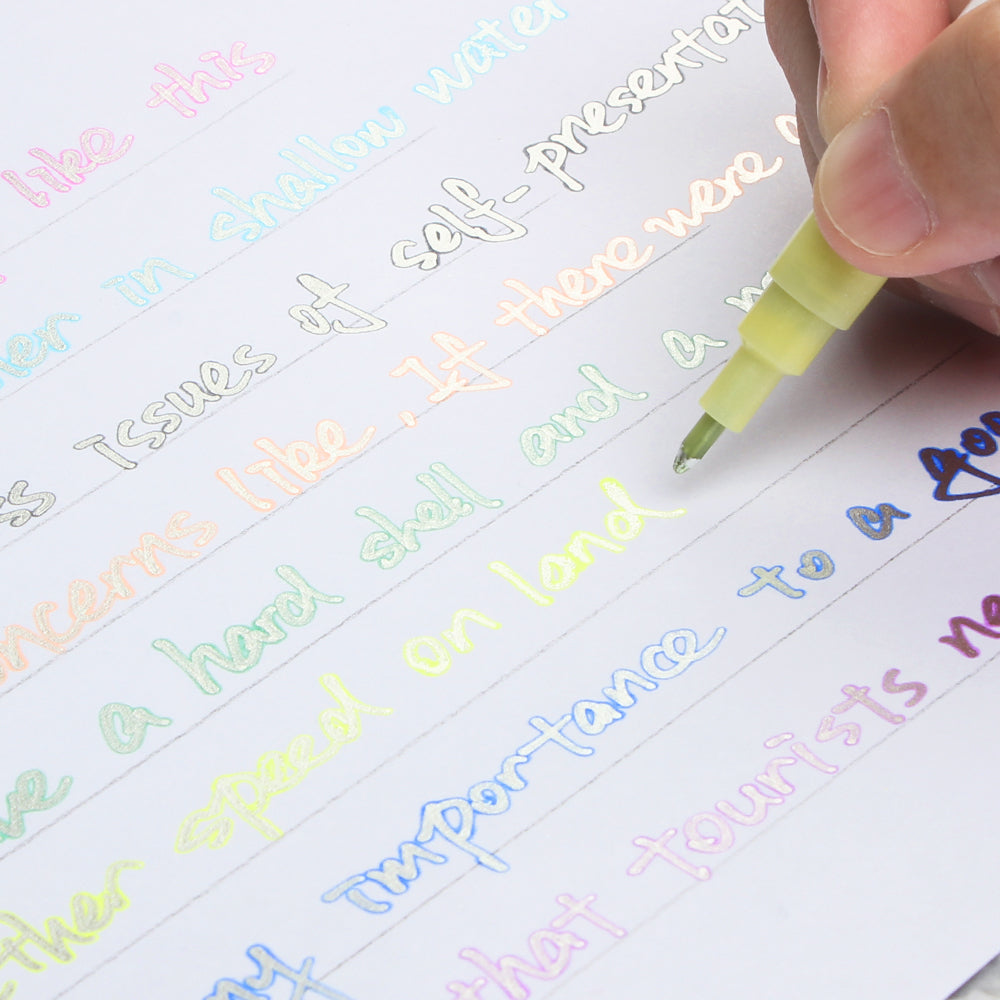 like this
in shallow water
issues of self-presentat
ncerns like , If there were
a hard shell and a
ther speed on land
importance to a
that tourists ne